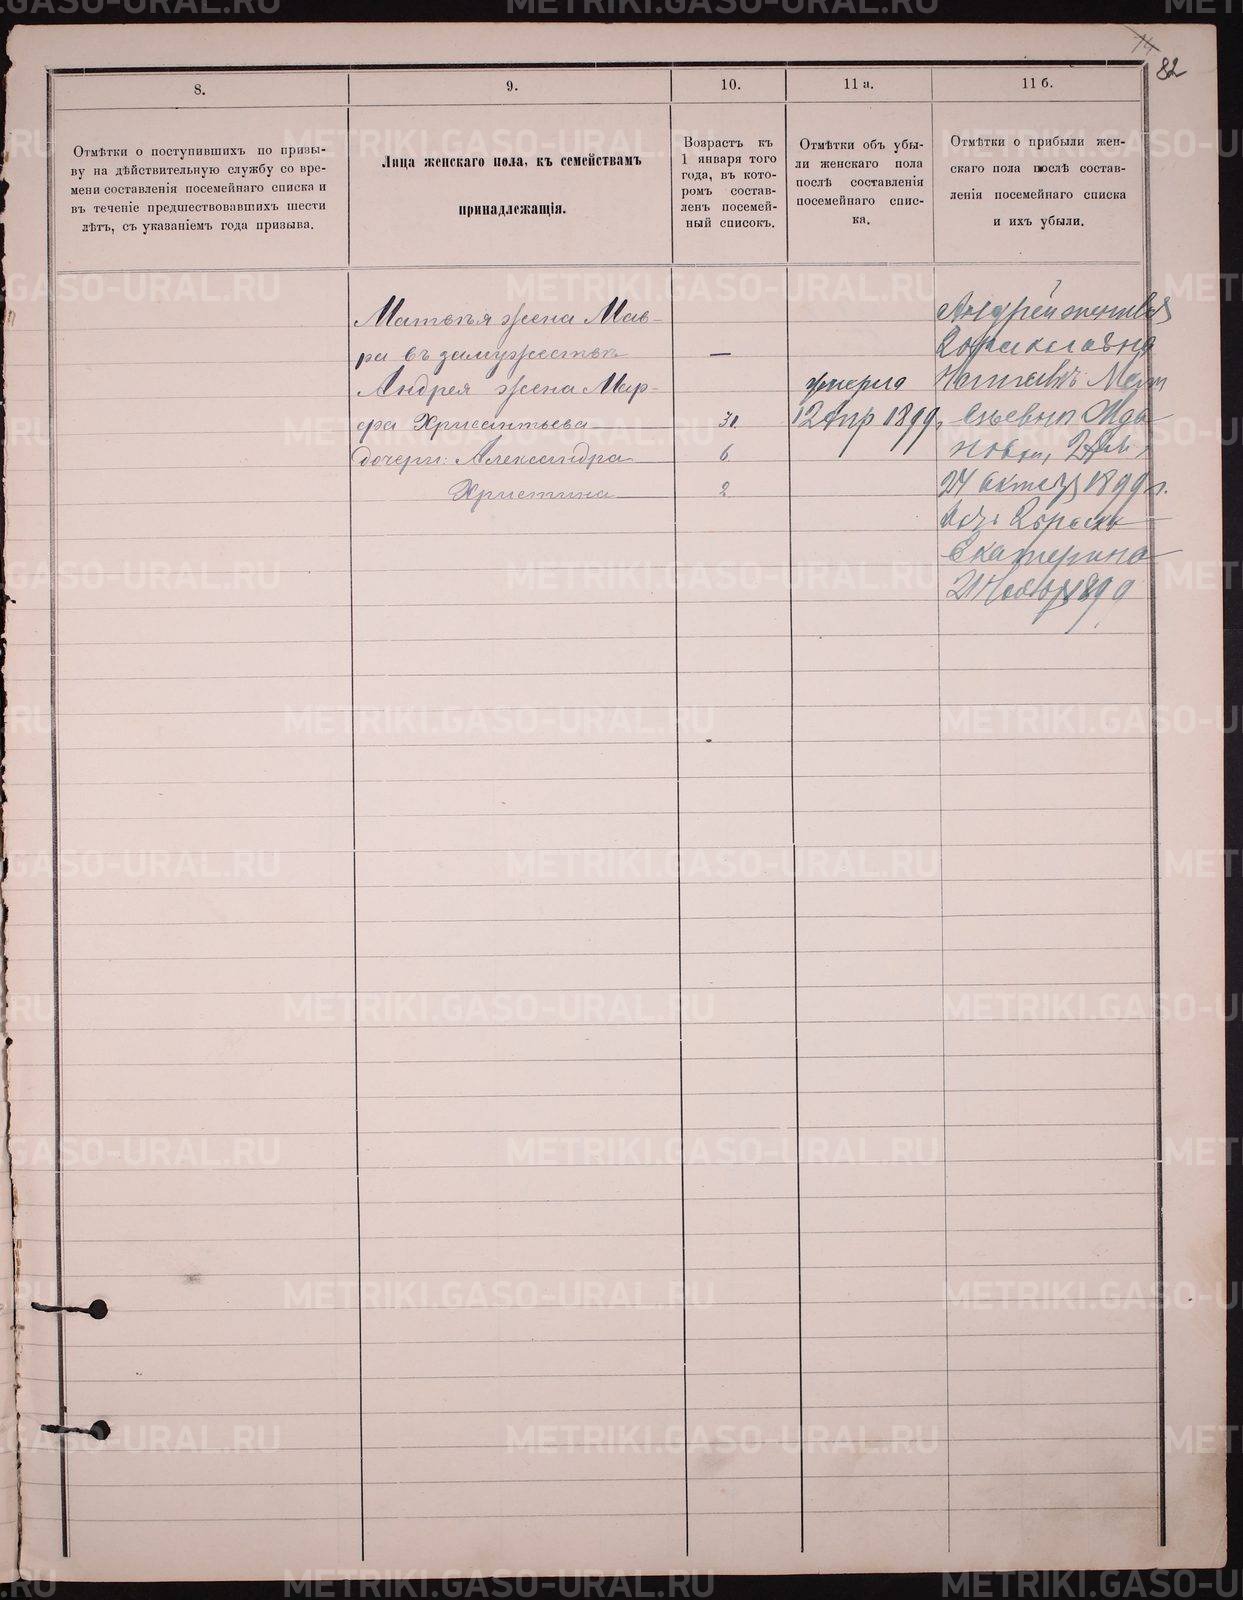 82
8.
9.
10.
11 а.
11 б.
Отмѣтки о поступившихъ по призы-
ву на дѣйствительную службу со вре-
мени составленія посемейнаго списка и
въ теченіе предшествовавшихъ шести
лѣтъ, съ указаніемъ года призыва.
Лица женскаго пола, къ семействамъ
принадлежащія.
Возрастъ къ
1 января того
года, въ кото-
ромъ состав-
ленъ посемей-
ный списокъ.
Отмѣтки объ убы-
ли женскаго пола
послѣ составленія
посемейнаго спис-
ка.
Отмѣтки о прибыли жен-
скаго пола послѣ состав-
ленія посемейнаго списка
и ихъ убыли.
Матвѣя жена Мав-
ра въ замужествѣ —
Андрея жена Мар-
фа Хрисантьева 31.
дочери: Александра 6
Христина 2
умерла
12 Апр 1899.
Андрей женився
24 октяб 1899 г.
Екатерина
21 Ноябр 1899
METRIKI.GASO-URAL.RU